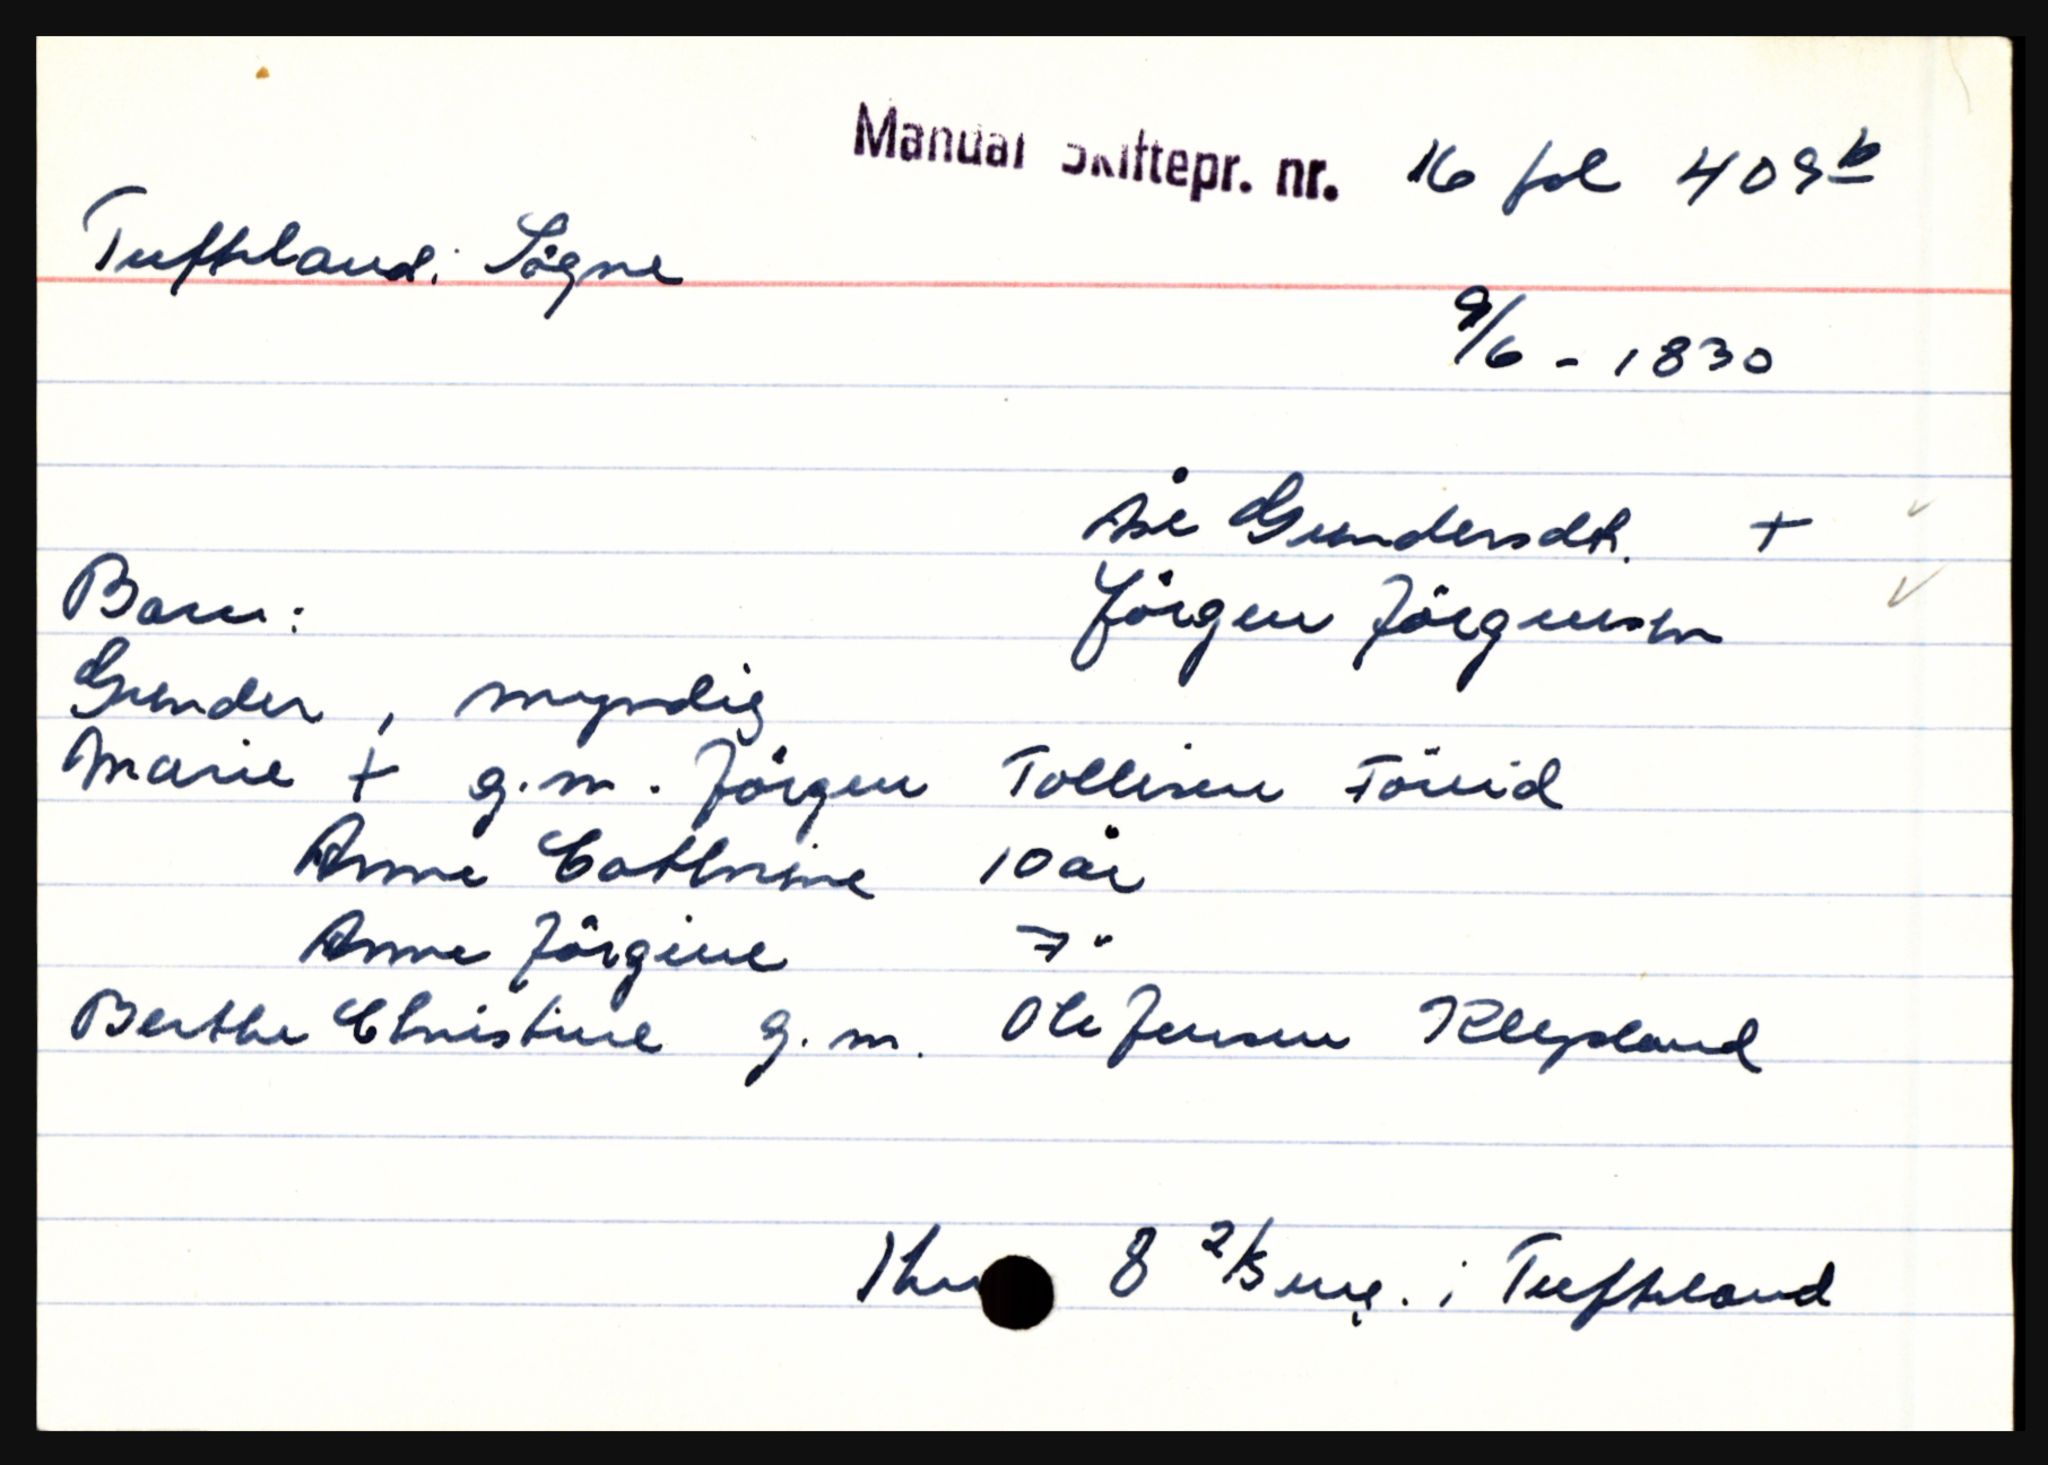 Manual Skiftepr. nr. 16 fol 409 b
Tufteland i Sögne
9/6 - 1830
Åse Gundersdt. +
Barn: Jörgen Jörgensen
Gunder, myndig
Marie + g.m. Jörgen Tollisen
Anne Cathrine 10 år
Anne Jörgine 7 "
Berthe Christine g.m. Ole Jensen Klepland
8 2/3 i Tufteland